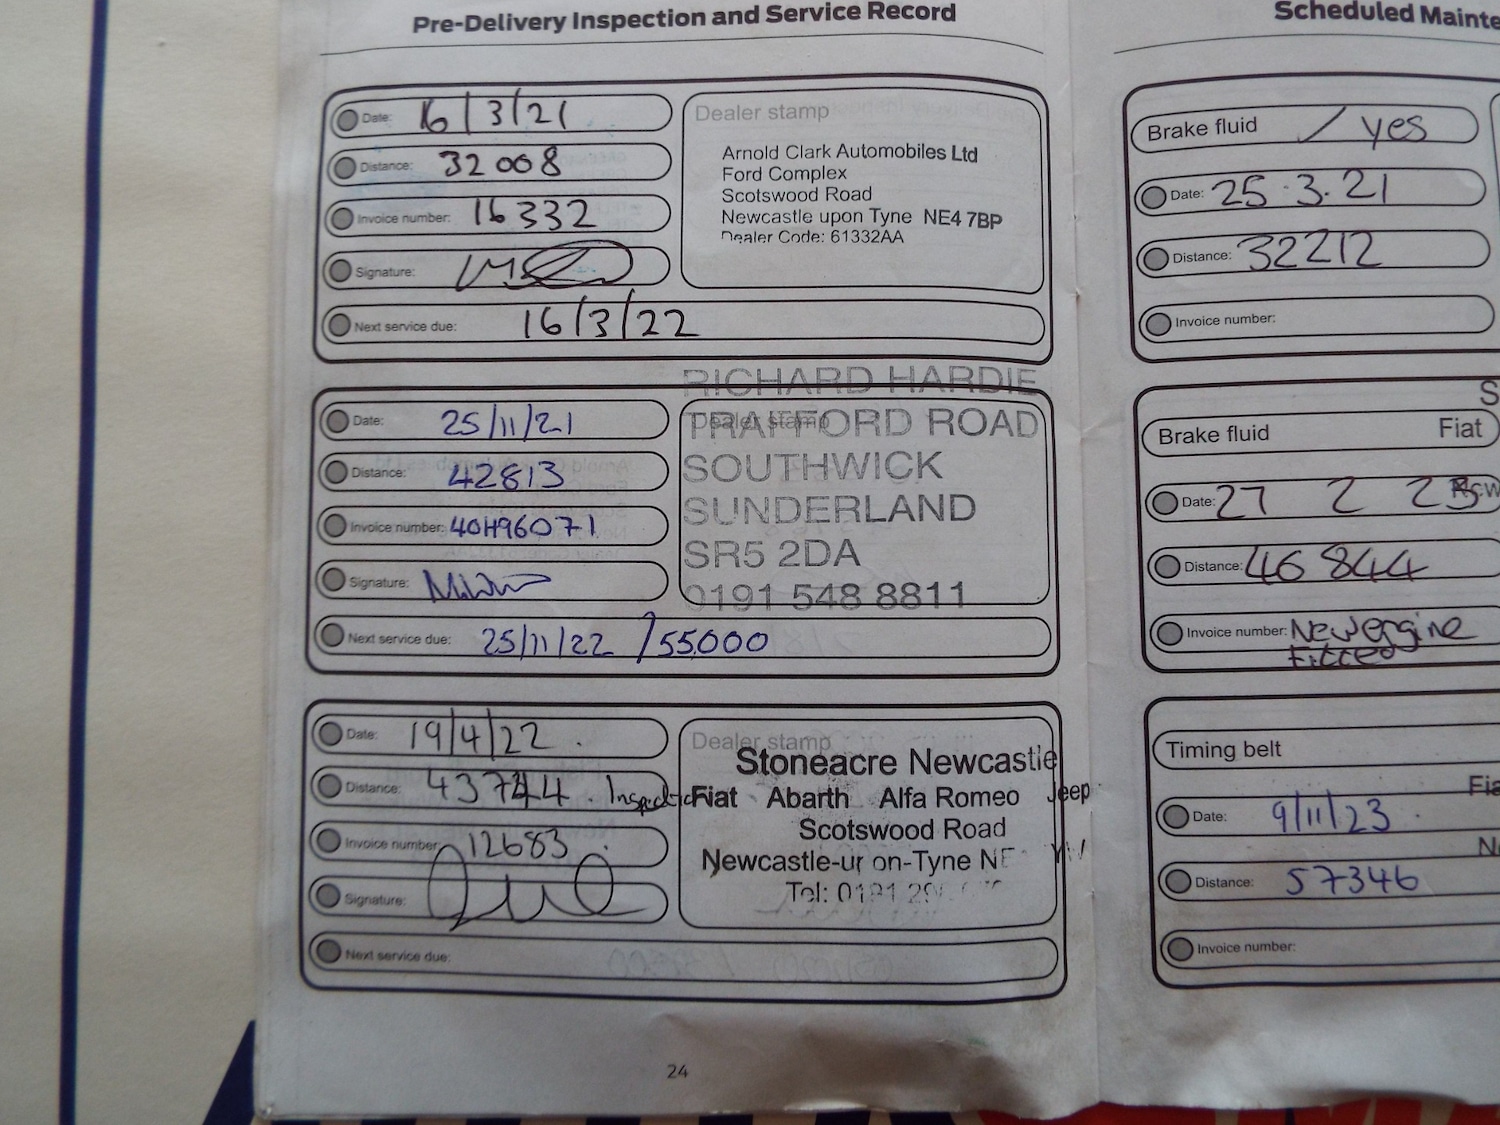 Pre-Delivery Inspection and Service Record
Date: 16/3/21
Distance: 32008
Invoice number: 16332
Signature:
Next service due: 16/3/22
Dealer stamp
Arnold Clark Automobiles Ltd
Ford Complex
Scotswood Road
Newcastle upon Tyne NE4 7BP
Dealer Code: 61332AA
Date: 25/11/21
Distance: 42813
Invoice number: 40H96071
Signature:
Next service due: 25/11/22 /55000
Dealer stamp
RICHARD HARDIE
TRAFFORD ROAD
SOUTHWICK
SUNDERLAND
SR5 2DA
0191 548 8811
Date: 19/4/22.
Distance: 43744. Inspect
Invoice number: 12683.
Signature:
Next service due:
Dealer stamp
Stoneacre Newcastle
Fiat Abarth Alfa Romeo Jeep
Scotswood Road
Newcastle-upon-Tyne NE
Tel: 0191
24
Scheduled Mainte
Brake fluid / yes
Date: 25.3.21
Distance: 32212
Invoice number:
S
Brake fluid Fiat
Date: 27 2 23
Distance: 46844
Invoice number: New engine
Fitted
Timing belt
Fia
Date: 9/11/23.
N
Distance: 57346
Invoice number: